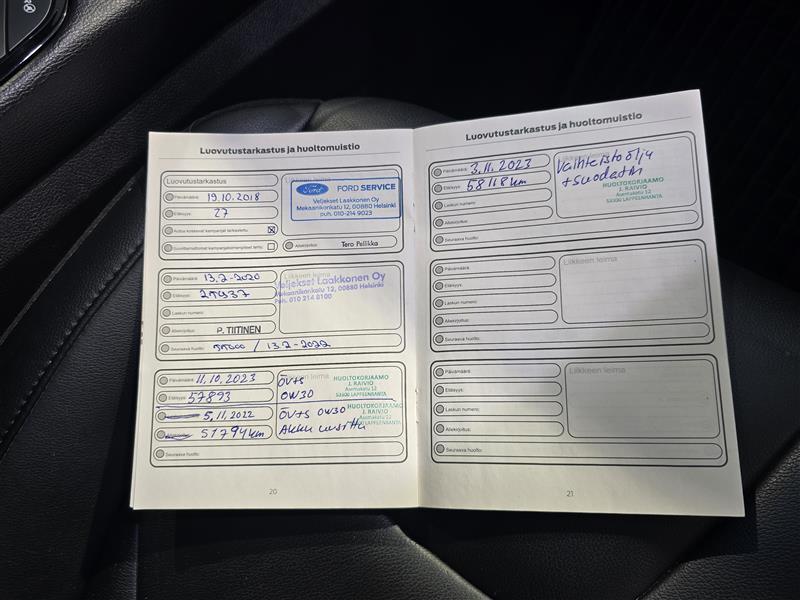 Luovutustarkastus ja huoltomuistio
Luovutustarkastus
Liikkeen leima
Päivämäärä: 19.10.2018
Etäisyys: 27
Ford FORD SERVICE
Veljekset Laakkonen Oy
Mekaanikonkatu 12, 00880 Helsinki
puh. 010-214 9023
Autoa koskevat kampanjat tarkastettu:
Suorittamattomat kampanjatoimenpiteet tehty:
Allekirjoitus: Tero Pellikka
Päivämäärä: 13.2-2020
Liikkeen leima
Etäisyys:
Veljekset Laakkonen Oy
Mekaanikonkatu 12, 00880 Helsinki
Puh. 010 214 8100
Laskun numero:
Allekirjoitus: P. TIITINEN
Seuraava huolto: / 13.2-2022
Päivämäärä: 11.10.2023
Etäisyys: 57893
ÖV+S
0W30
HUOLTOKORJAAMO
J. RAIVIO
Asematalu 12
53500 LAPPEENRANTA
5.11.2022
51794 km
ÖV+S 0W30
Akku uusittu
HUOLTOKORJAAMO
J. RAIVIO
Seuraava huolto:
20
Luovutustarkastus ja huoltomuistio
Päivämäärä: 3.11.2023
Etäisyys: 58118 km
Laskun numero:
Allekirjoitus:
Seuraava huolto:
Vaihteistoölju
+ suodatin
HUOLTOKORJAAMO
J. RAIVIO
53500 LAPPEENRANTA
Päivämäärä:
Etäisyys:
Laskun numero:
Allekirjoitus:
Seuraava huolto:
Liikkeen leima
Päivämäärä:
Etäisyys:
Laskun numero:
Allekirjoitus:
Seuraava huolto:
Liikkeen leima
21